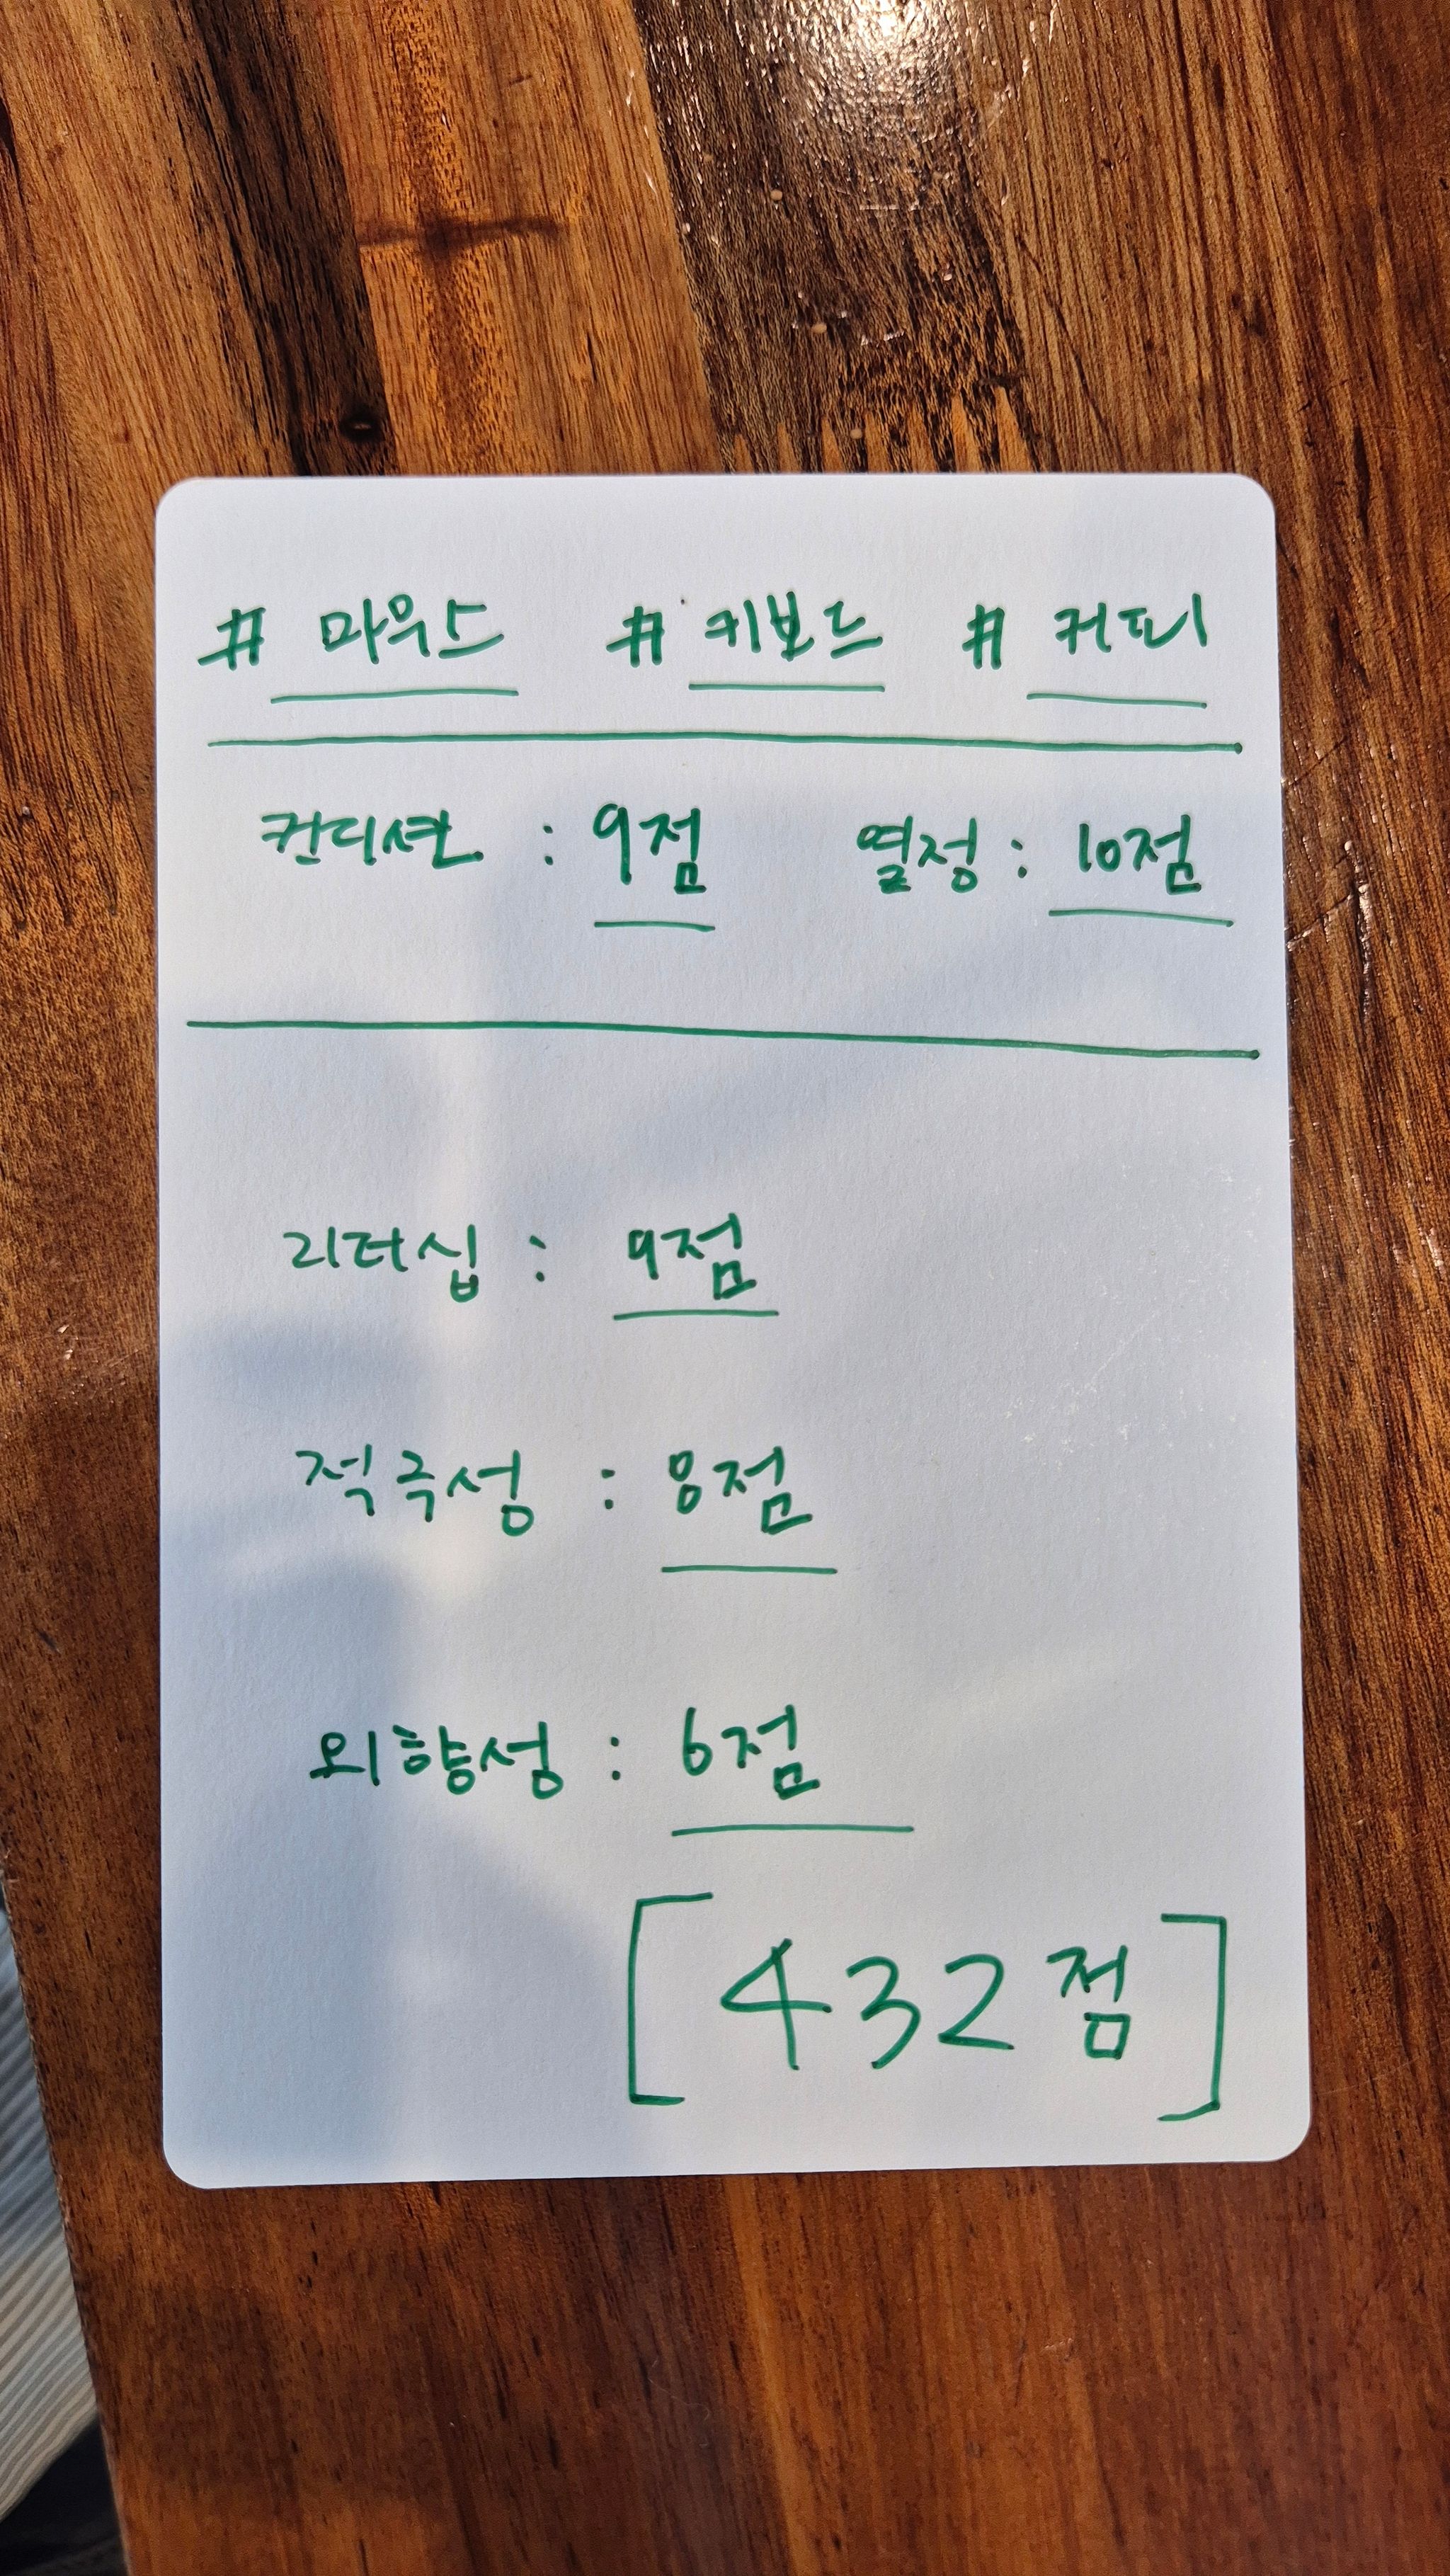 # 마우스 # 키보드 # 커피
컨디션 : 9점 열정 : 10점
리더십 : 9점
적극성 : 8점
외향성 : 6점
[432점]